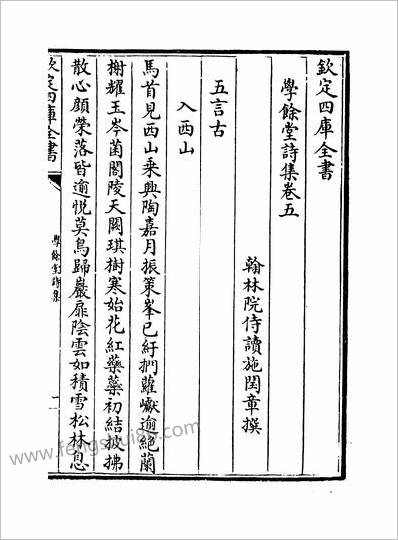 欽定四庫全書
學餘堂詩集卷五
翰林院侍讀施閏章撰
五言古
入西山
馬首見西山乘興陶嘉月振策峯已紆捫蘿巘逾絕蘭
榭耀玉岑菌閣陵天闕琪樹寒始花紅藥初結披拂
散心顔榮落皆逾悅莫鳥歸巖扉陰雲如積雪松林息
欽定四庫全書
學餘堂詩集
www.fengshui86.com